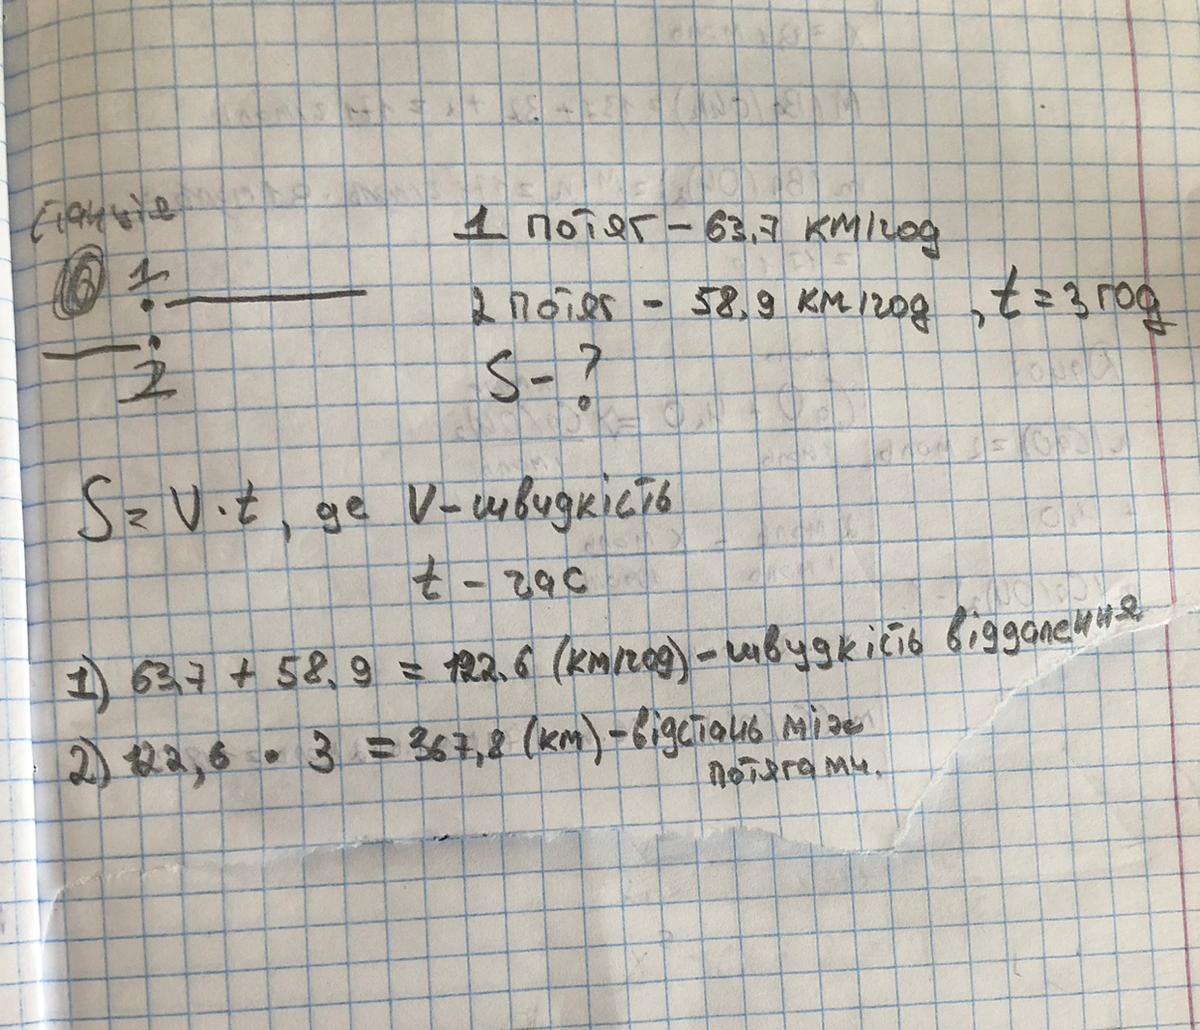 станція
1 потяг - 63,7 км/год
1
2 потяг - 58,9 км/год, t = 3 год
2
S - ?
S = V · t, де V - швидкість
t - час
1) 63,7 + 58,9 = 122,6 (км/год) - швидкість віддалення
2) 122,6 · 3 = 367,8 (км) - відстань між
потягами.